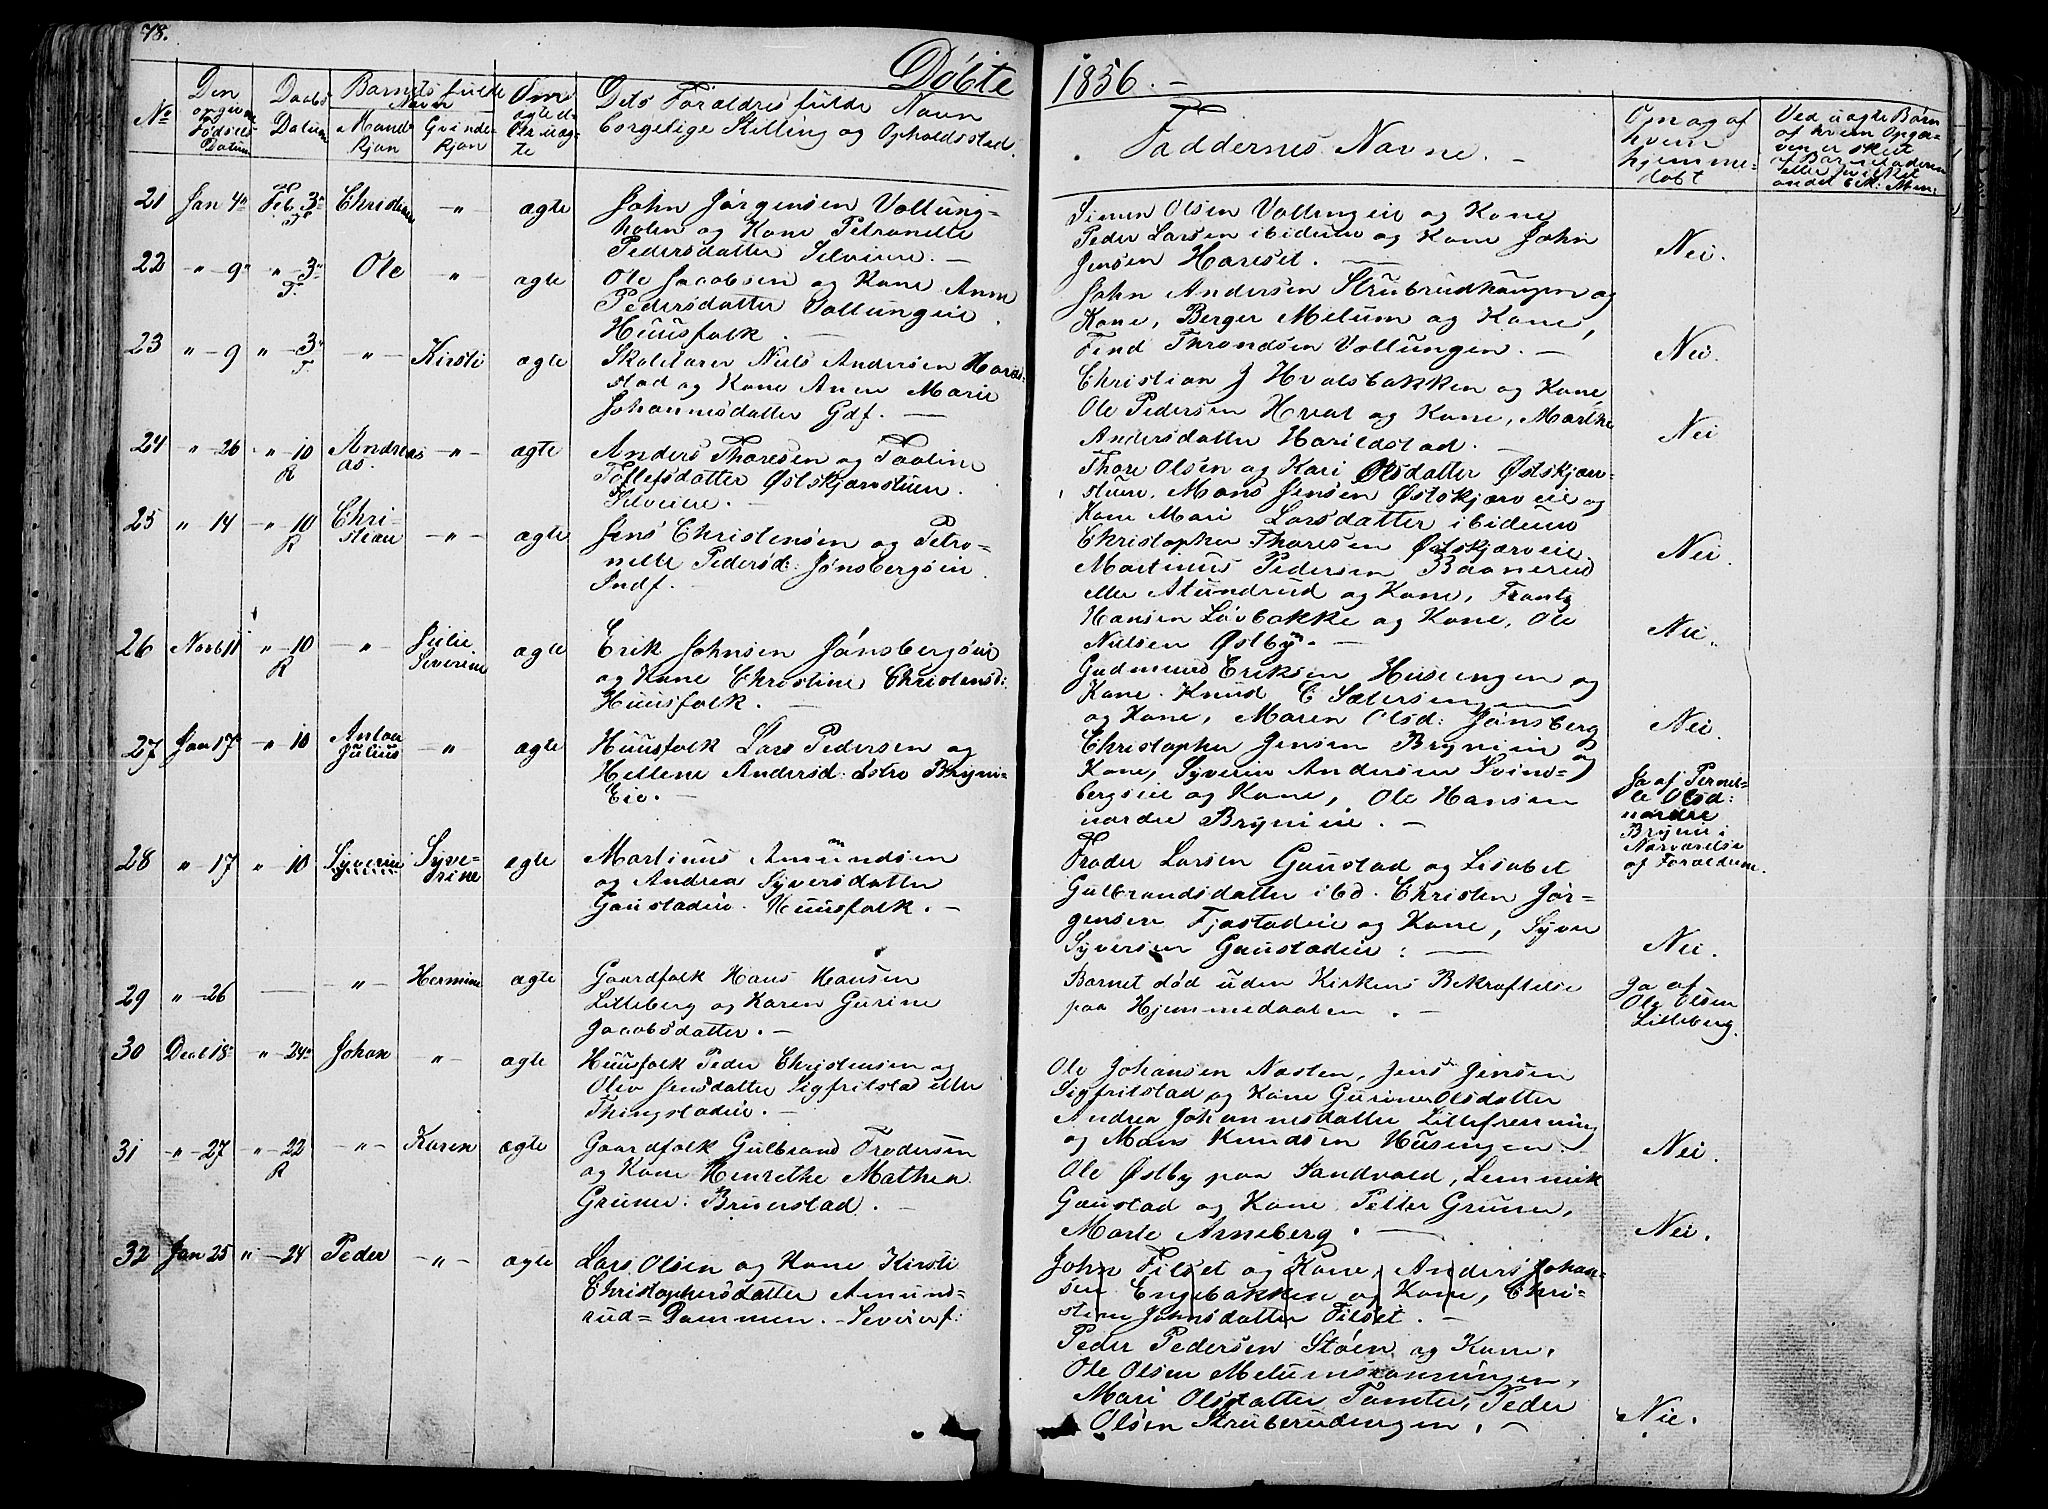 78.
Döbte
1856. –
No
Den opgivne Födsels Datum
Daabs Datum
Barnets fulde Navn
Mandkjøn
Qvindekjøn
Om ægte eller uægte
Dets Forældres fulde Navn
borgelige Stilling og Opholdssted.
Faddernes Navne. –
Om og af hvem hjemmedøbt
21 Jan 4 Feb. 3 F Christian – " – ægte John Jørgensen Vollung-
holen og Kone Petronelle
Pedersdatter Selveiere. –
Simen Olsen Vollungeie og Kone
Peder Larsen ibidum og Kone John
Jensen Hareset. –
Nei.
22 " – 9 " – 3 F. Ole – " – ægte Ole Jacobsen og Kone Anne
Pedersdatter Vollungeie
Huusfolk. –
John Andersen Strubrudhaugen og
Kone, Berger Melum og Kone,
Find Throndsen Vollungen. –
Nei.
23 " – 9 " – 3 F – " – Kirsti ægte Skolelærer Niels Andersen Harild-
stad og Kone Anne Marie
Johannesdatter Gdf. –
Christian J Hvalsbakken og Kone,
Ole Pedersen Hval og Kone, Marthe
Andersdatter Harildstad. –
Nei
24 " – 26 " – 10 R Andreas – " – ægte Anders Thoresen og Pauline
Tollefsdatter Østskjærstuen
Selveiere. –
Thore Olsen og Kari Olsdatter Østskjær-
stuen. Mons Jensen Østskjærveie og
Kone Mari Larsdatter ibidum
Christopher Thoresen Østskjærveie.
Nei.
25 " – 14 " – 10 R Chri-
stian – " – ægte Jens Christensen og Petro-
nelle Pedersd: Jønsbergseie
Indf.
Martinus Pedersen Baanerud
eller Amundrud og Kone, Frantz
Hansen Løvbakke og Kone, Ole
Nielsen Østby. –
Nei.
26 Novb 11 " – 10 R – " – Julie
Severine ægte Erik Johnsen Jønsbergseie
og Kone Christine Christensd:
Huusfolk. –
Gudmund Eriksen Huseengen og
Kone. Knud E Sætersengen
og Kone, Maren Olsd: Jønsberg
Nei.
27 Jan 17 " – 10 Anton
Julius – " – ægte Huusfolk Lars Pedersen og
Hellene Andersd: østre Bryni-
Eie. –
Christopher Jensen Brynieie og
Kone, Syverin Andersen Svind-
bergseie og Kone, Ole Hansen
nordre Brynieie. –
Ja af Pernil-
le Olsd:
nordre
Brynie i
Nærværelse
af Forældrene.
28 " – 17 " – 10 Syverin Syve-
rine ægte Martinus Amundsen
og Andrea Syversdatter
Gaustadeie. Huusfolk. –
Froder Larsen Gaustad og Lisabet
Gulbrandsdatter ibd. Christen Jør-
gensen Fjæstadeie og Kone, Syver
Syversen Gaustadeie: –
Nei.
29 " – 26 — – " – Hermine ægte Gaardfolk Hans Hansen
Lilleberg og Karen Gurine
Jacobsdatter. –
Barnet død uden Kirkens Bekræftelse
paa Hjemmedaaben. –
Ja af
Ole Olsen
Lilleberg.
30 Decb 18 " – 24 Johan – " – ægte Huusfolk Peder Christensen og
Olea Jensdatter Sigfritstad eller
Thingstadeie. –
Ole Johansen Næsten, Jens Jensen
Sigfritstad og Kone Gurine Olsdatter
Andrea Johannesdatter Lillefrenning
og Mons Knudsen Husengen.
Nei.
31 " – 27 " – 22 R – " – Karen ægte Gaardfolk Gulbrand Frodersen
og Kone Henrethe Mathea
Gruner: Bruenstad. –
Ole Østby paa Sandvold, Lemmik
Gaustad og Kone, Petter Gruner,
Marte Arneberg. –
Nei.
32 Jan 25 " – 24 Peder – " – ægte Lars Olsen og Kone Kirsti
Christophersdatter Amund-
rud = Dammen. – Seveierf:
John Filset og Kone, Anders Johan-
sen Engebakken og Kone, Chri-
stine Johnsdatter Filset. –
Peder Pedersen Støen og Kone,
Ole Olsen Melumskonningen,
Mari Olsdatter Tomter, Peder
Olsen Struberudengen. –
Nei.